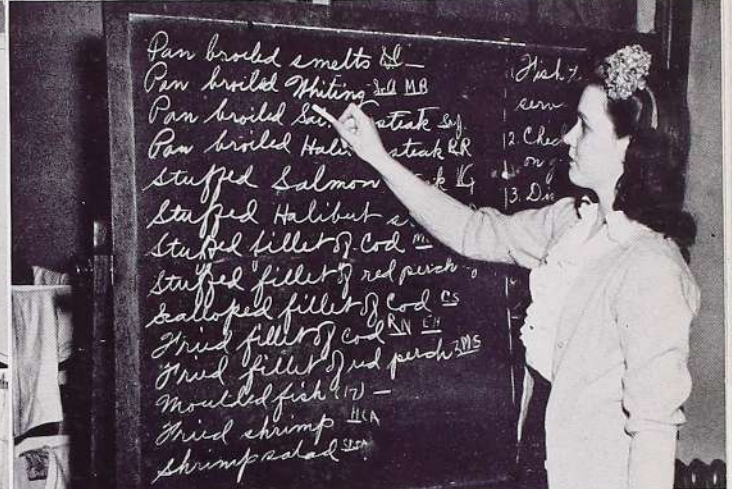 Pan broiled smelts
Pan broiled Whiting MR
Pan broiled steak
Pan broiled steak RR
Stuffed Salmon
Stuffed Halibut
Stuffed fillet of Cod
Stuffed fillet of red perch
Scalloped fillet of Cod CS
Fried fillet of cod RN EH
Fried fillet of red perch MS
Moulded fish (17) —
Fried shrimp HCA
Shrimp salad
1. Fish
serv
2.
on
3.